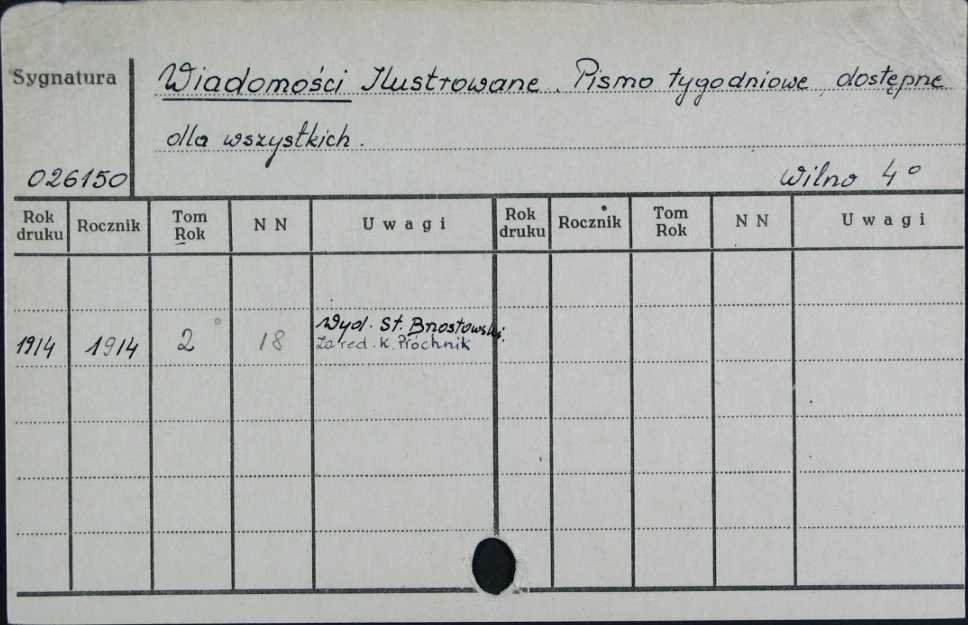 Sygnatura
Wiadomości Ilustrowane. Pismo tygodniowe, dostępne
dla wszystkich.
026150
Wilno 4°
Rok druku Rocznik Tom Rok N N Uwagi Rok druku Rocznik Tom Rok N N Uwagi
1914 1914 2 18 Wyd. St. Brzostowski.
Za red. K. Próchnik